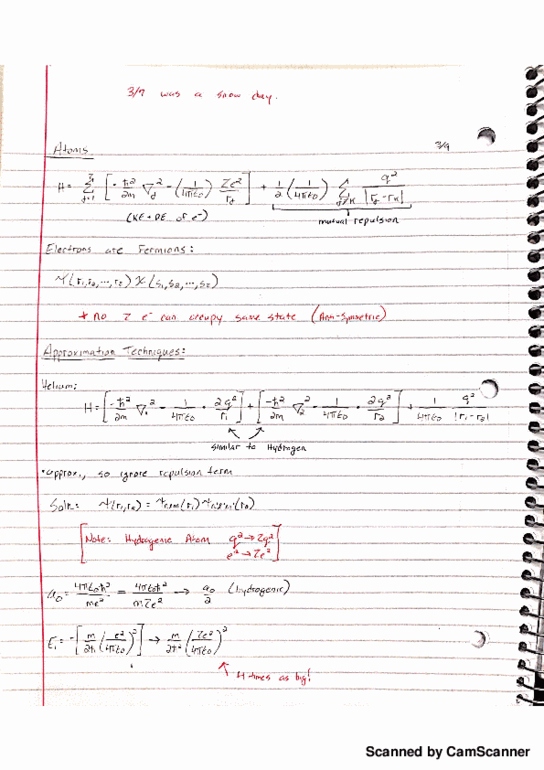 3/7 was a snow day.
Atoms 3/9
H = Σ_{j=1}^{Z} [ -ħ²/2m ∇_j² - (1/4πε₀) Ze²/r_j ] + ½ (1/4πε₀) Σ_{j≠k} q²/|r_j - r_k|
(KE + PE of e⁻) mutual repulsion
Electrons are Fermions:
ψ(r₁, r₂, ..., r_z) χ(s₁, s₂, ..., s_z)
* no 2 e⁻ can occupy same state (Anti-Symmetric)
Approximation Techniques:
Helium:
H = [ -ħ²/2m ∇₁² - 1/4πε₀ · 2q²/r₁ ] + [ -ħ²/2m ∇₂² - 1/4πε₀ · 2q²/r₂ ] + 1/4πε₀ q²/|r₁ - r₂|
similar to Hydrogen
• approx., so ignore repulsion term
Soln: ψ(r₁, r₂) = ψ_{nlm}(r₁) ψ_{n'l'm'}(r₂)
[Note: Hydrogenic Atom q² → Zq²
e² → Ze²]
a₀ = 4πε₀ħ²/me² = 4πε₀ħ²/mZe² → a₀/2 (hydrogenic)
E₁ = -[ m/2ħ (e²/4πε₀)² ] → m/2ħ² (Ze²/4πε₀)²
4 times as big!
Scanned by CamScanner